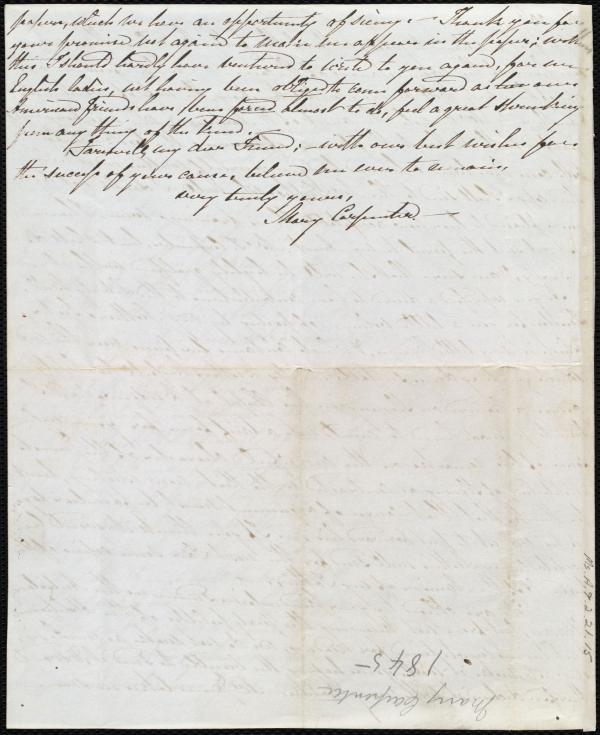 papers, which we have an opportunity of seeing. – Thank you for
your promise not again to make me appear in the papers; without
this I should hardly have ventured to write to you again, for we
English ladies, not having been obliged to come forward as our
American friends have been forced almost to do, feel a great shrinking
from any thing of the kind.
Farewell, my dear Friend; – with our best wishes for
the success of your cause, believe me ever to remain,
very truly yours,
Mary Carpenter –
Ms.A.9.2.21.15
Mary Carpenter
1845–